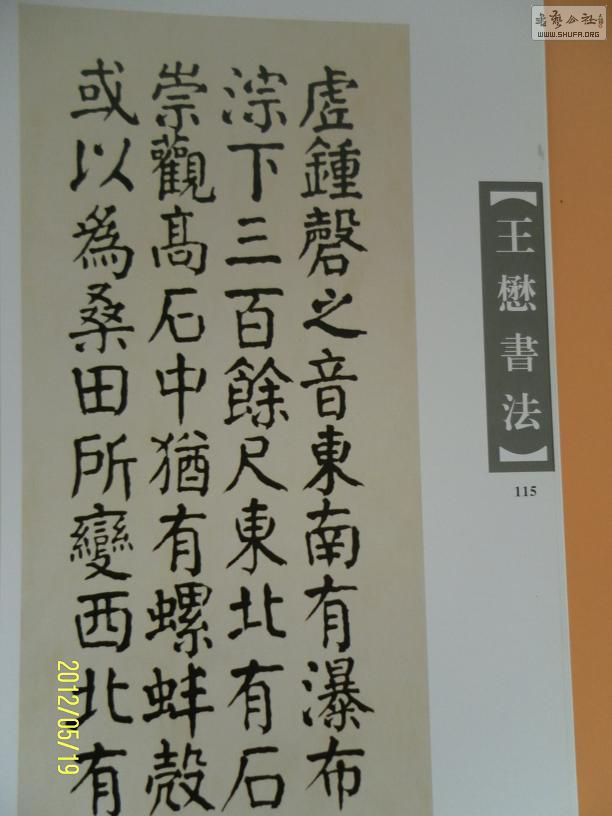 虚鍾磬之音東南有瀑布
淙下三百餘尺東北有石
崇觀高石中猶有螺蚌殼
或以爲桑田所變西北有
【王懋書法】
115
2012/05/19
書藝公社
WWW.SHUFA.ORG